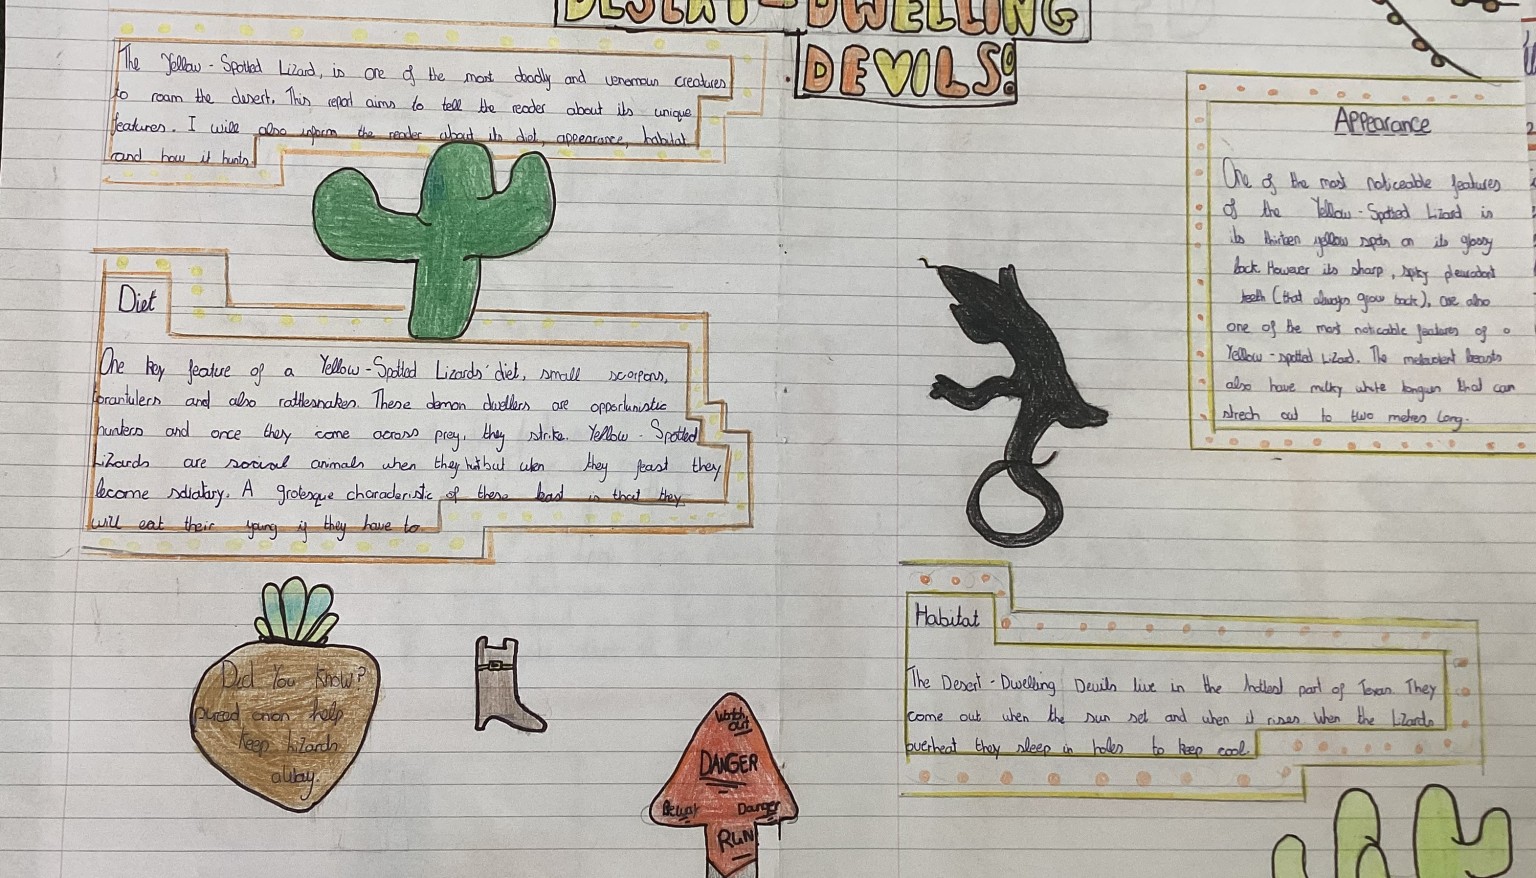 DESERT-DWELLING
DEVILS!
The Yellow-Spotted Lizard, is one of the most deadly and venomous creatures
to roam the desert. This report aims to tell the reader about its unique
features. I will also inform the reader about its diet, appearance, habitat
and how it hunts.
Diet
One key feature of a Yellow-Spotted Lizards' diet, small scorpions,
and also rattlesnakes. These demon dwellers are opportunistic
hunters and once they come across prey, they strike. Yellow-Spotted
Lizards are social animals when they but when they feast they
become A grotesque characteristic of these beast is that they
will eat their young if they have to.
Did You Know?
onion help
keep lizards
away.
Watch
out
DANGER
Beware Danger
RUN
Appearance
One of the most noticeable features
of the Yellow-Spotted Lizard is
its thirteen yellow spots on its glossy
back. However its sharp, spiky
teeth (that always grow back), are also
one of the most noticable features of a
Yellow-spotted Lizard. The beasts
also have milky white that can
strech out to two metres long.
Habitat
The Desert-Dwelling Devils live in the hottest part of Texas. They
come out when the sun set and when it rises. When the Lizards
overheat they sleep in holes to keep cool.